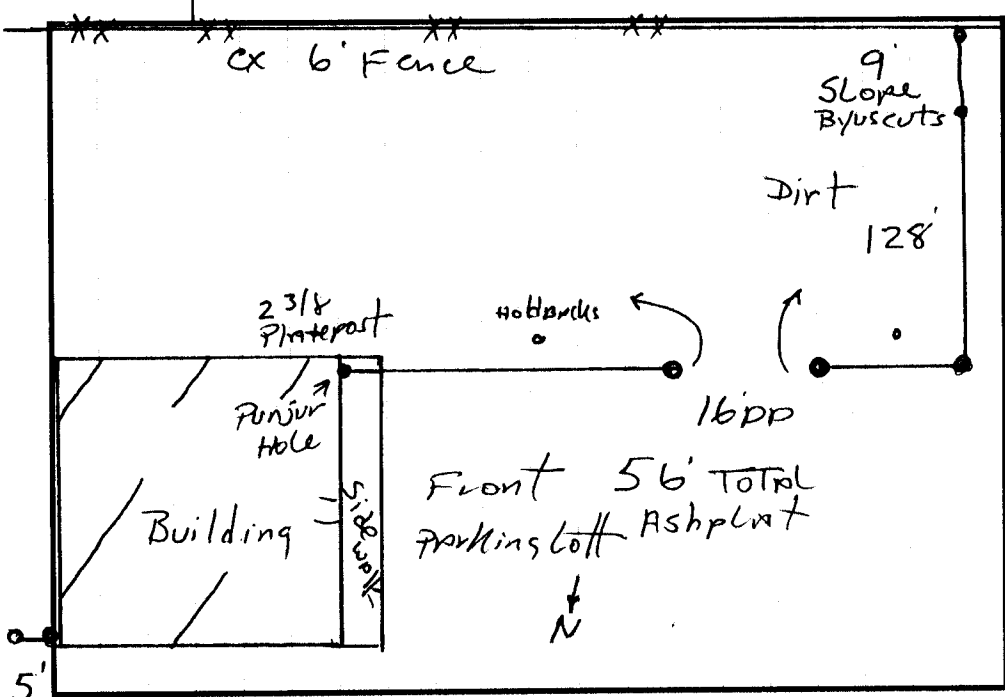 cx 6' Fence
9'
Slope
Byuscuts
Dirt
128'
2 3/8
Platepost
HoldBacks
Punjur
Hole
16'DD
Building
Sidewalk
Front 56' Total
Parking Lott Ashplat
N
5'